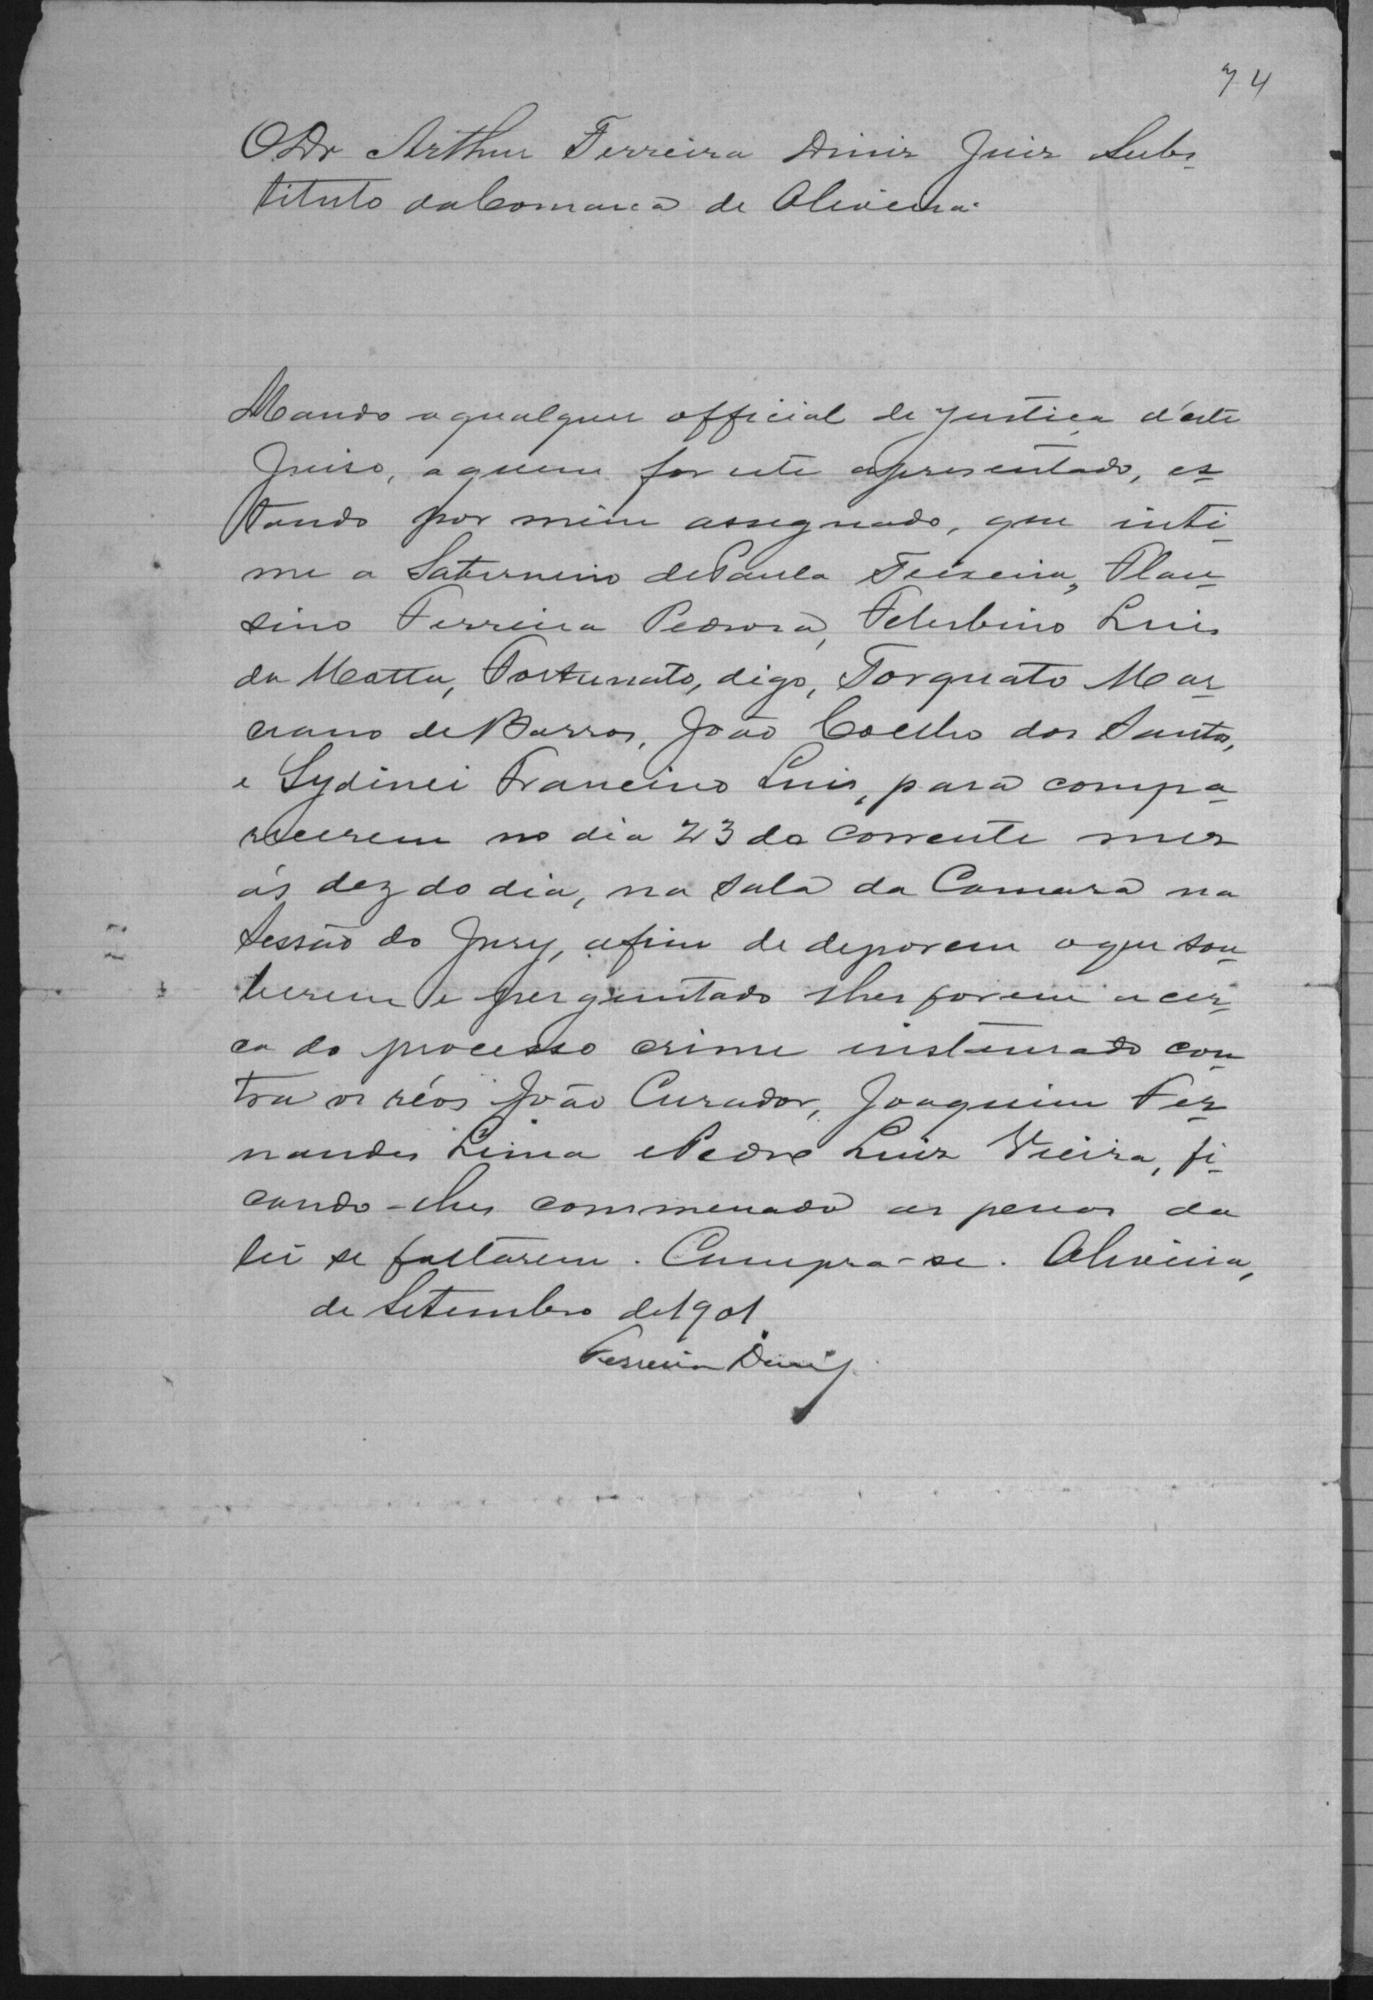 74
O Dr Arthur Ferreira Diniz Juiz Subs-
tituto da Comarca de Oliveira.
Mando a qualquer official de justiça d'este
Juiso, a quem for este apresentado, es-
tando por mim assegnado, que inti-
me a Saturnino de Paula Teixeira, Plau-
sino Ferreira Pedrosa, Felisbino Luis
da Matta, Fortunato, digo, Torquato Mar-
ciano de Barros, João Coelho dos Santos,
e Sydinei Francino Luis, para compa-
recerem no dia 23 do corrente mez
ás dez do dia, na sala da Camara na
Sessão do Jury, afim de deporem o que sou-
berem e perguntado lhes forem acer-
ca do processo crime instaurado con-
tra os réos João Curador, Joaquim Fer-
nandes Lima e Pedro Luiz Vieira, fi-
cando-lhes comminado as penas da
lei se faltarem. Cumpra-se. Oliveira,
de Setembro de 1901
Ferreira Diniz